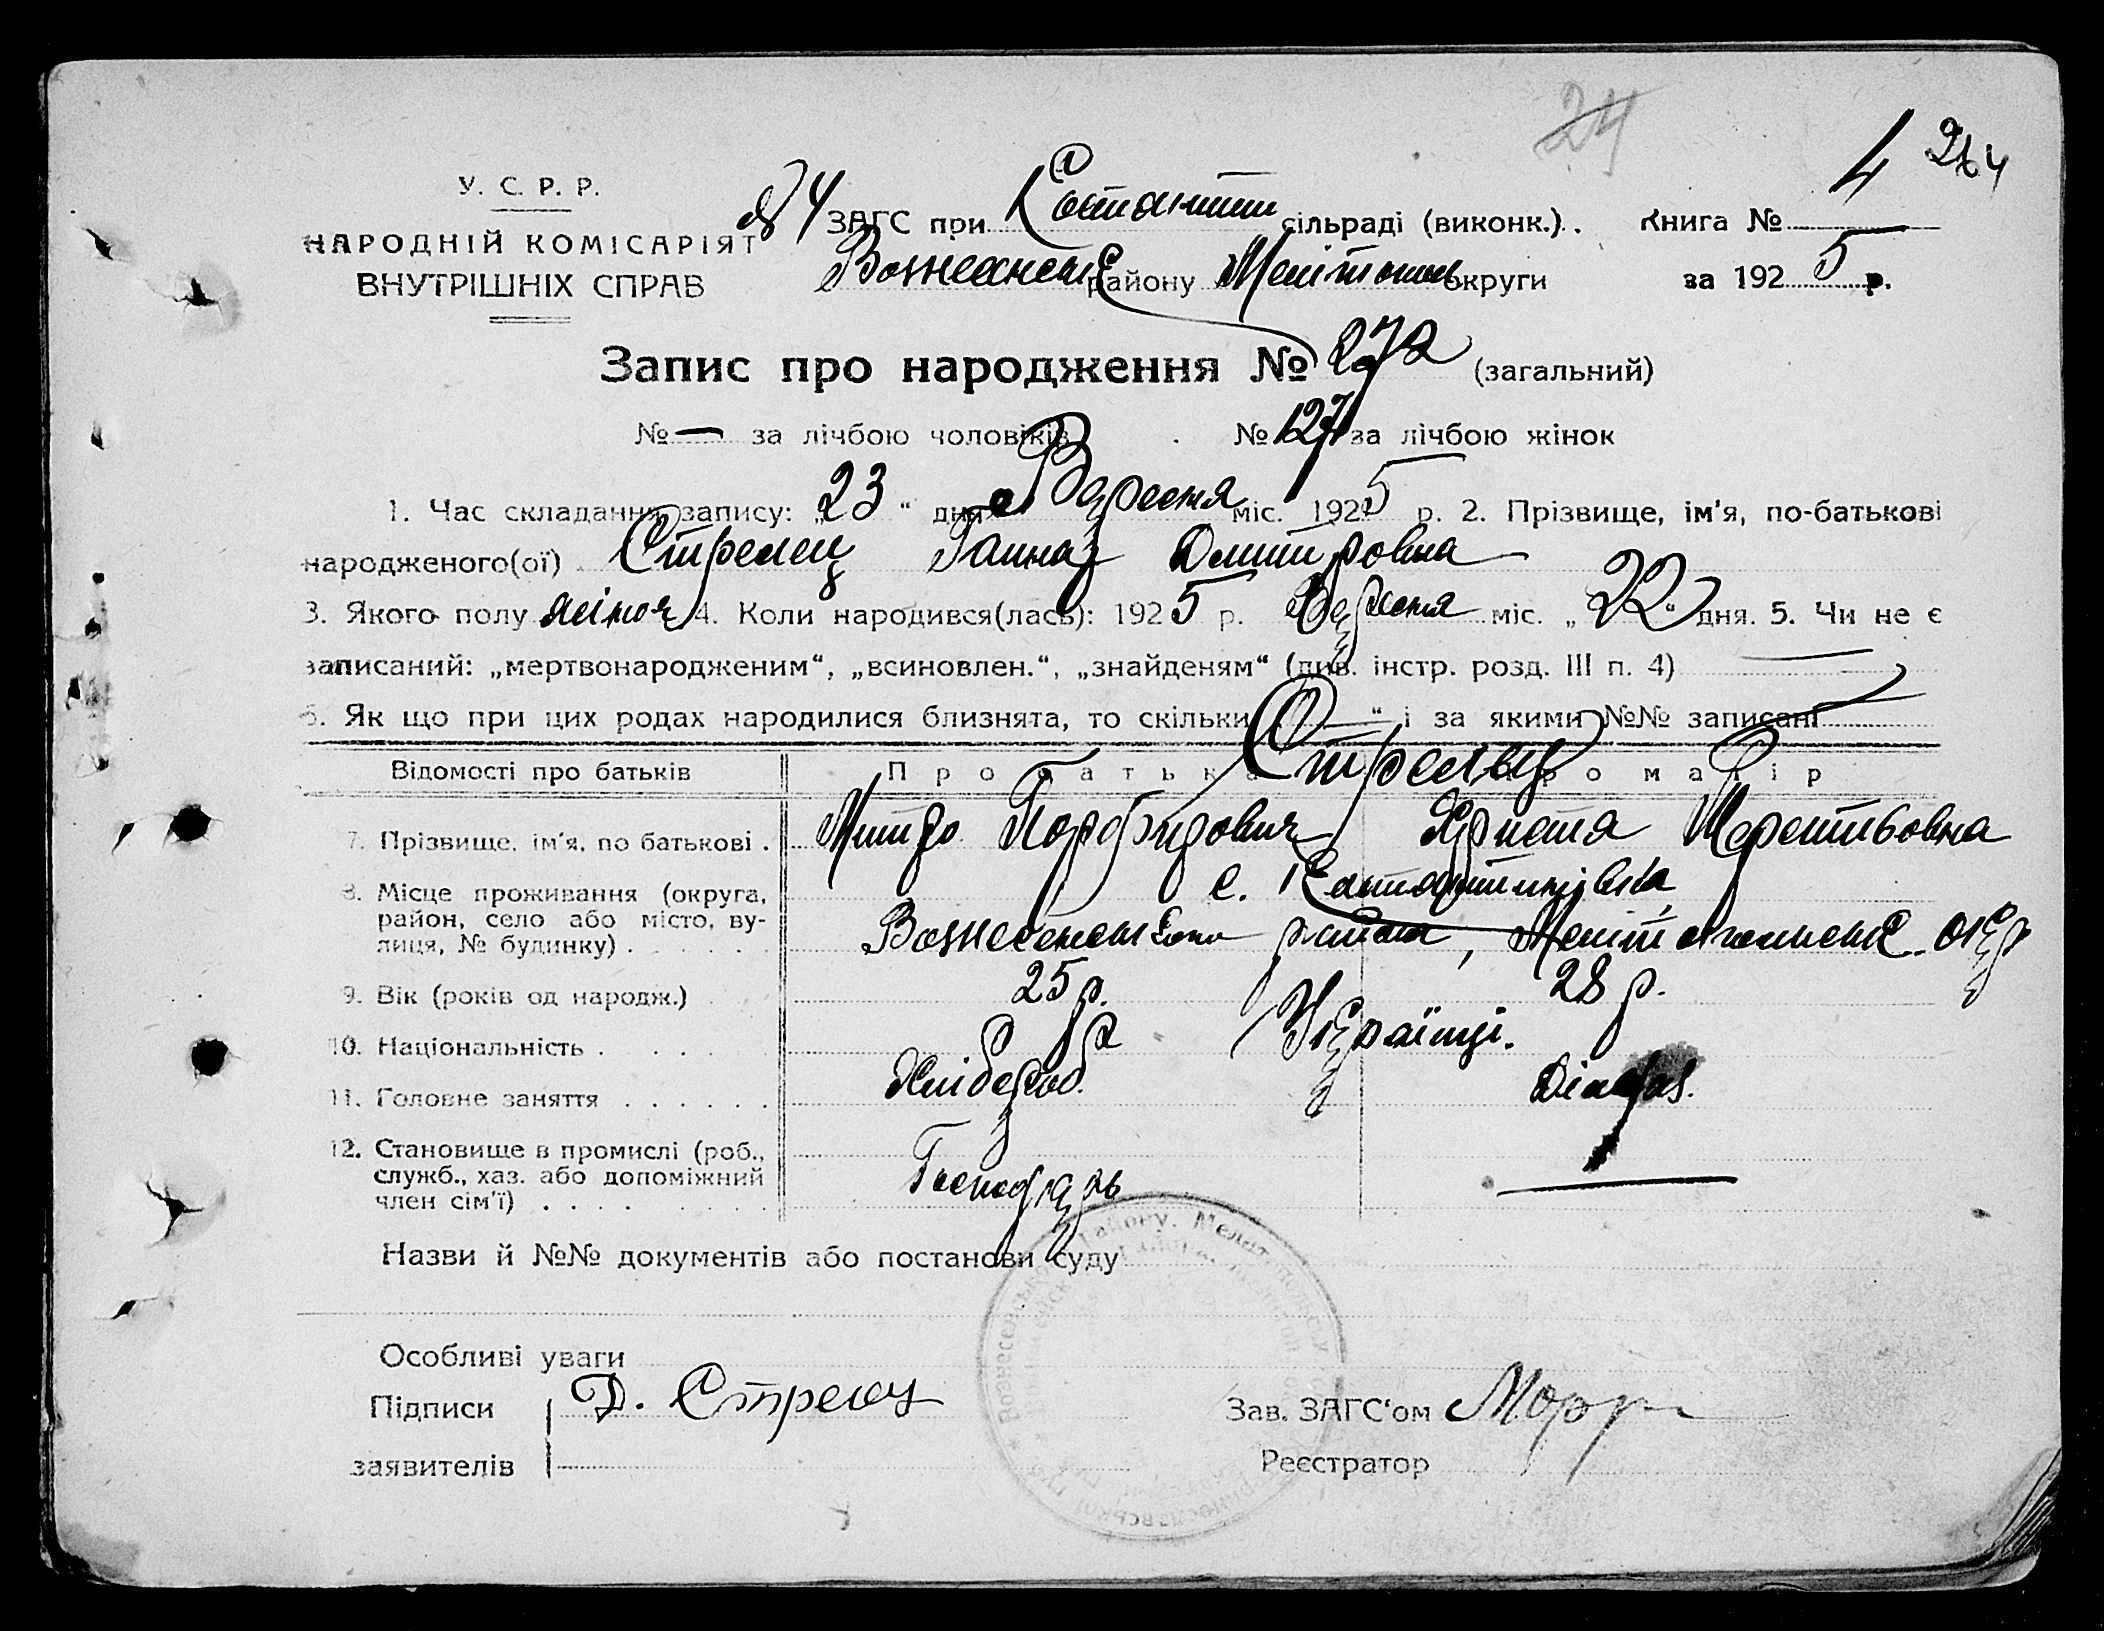 24
264
У. С. Р. Р.
НАРОДНІЙ КОМІСАРІЯТ
ВНУТРІШНІХ СПРАВ
ЗАГС при Костянтин сільраді (виконк.). Книга № 4
Вознесенськ району Мелітопільс округи за 1925 р.
Запис про народження № 272 (загальний)
№ — за лічбою чоловіків № 127 за лічбою жінок
1. Час складання запису: „23“ дня Вересня міс. 1925 р. 2. Прізвище, ім'я, по-батькові
народженого(ої) Стрелец Ганна Дмитровна
3. Якого полу жіноч 4. Коли народився(лась): 1925 р. Вересня міс. „22“ дня. 5. Чи не є
записаний: „мертвонародженим“, „всиновлен.“, „знайденям“ (див. інстр. розд. III п. 4)
6. Як що при цих родах народилися близнята, то скільки „ — “ і за якими №№ записані
Відомості про батьків Про батька Про матір
Стрельці
7. Прізвище, ім'я, по батькові . Митро Порфирович Христя Терентьовна
8. Місце проживання (округа, с. Костянтинівка,
район, село або місто, ву-
лиця, № будинку) . Вознесенського району, Мелітопільськ. окр
9. Вік (років од народж.) 25 р. 28 р.
10. Національність . Українці.
11. Головне заняття Хлібороб.
12. Становище в промислі (роб.,
служб., хаз. або допоміжний Господарь —
член сім'ї)
Назви й №№ документів або постанови суду
Особливі уваги
Підписи Д. Стрелец Зав. ЗАГС'ом
заявителів Реєстратор